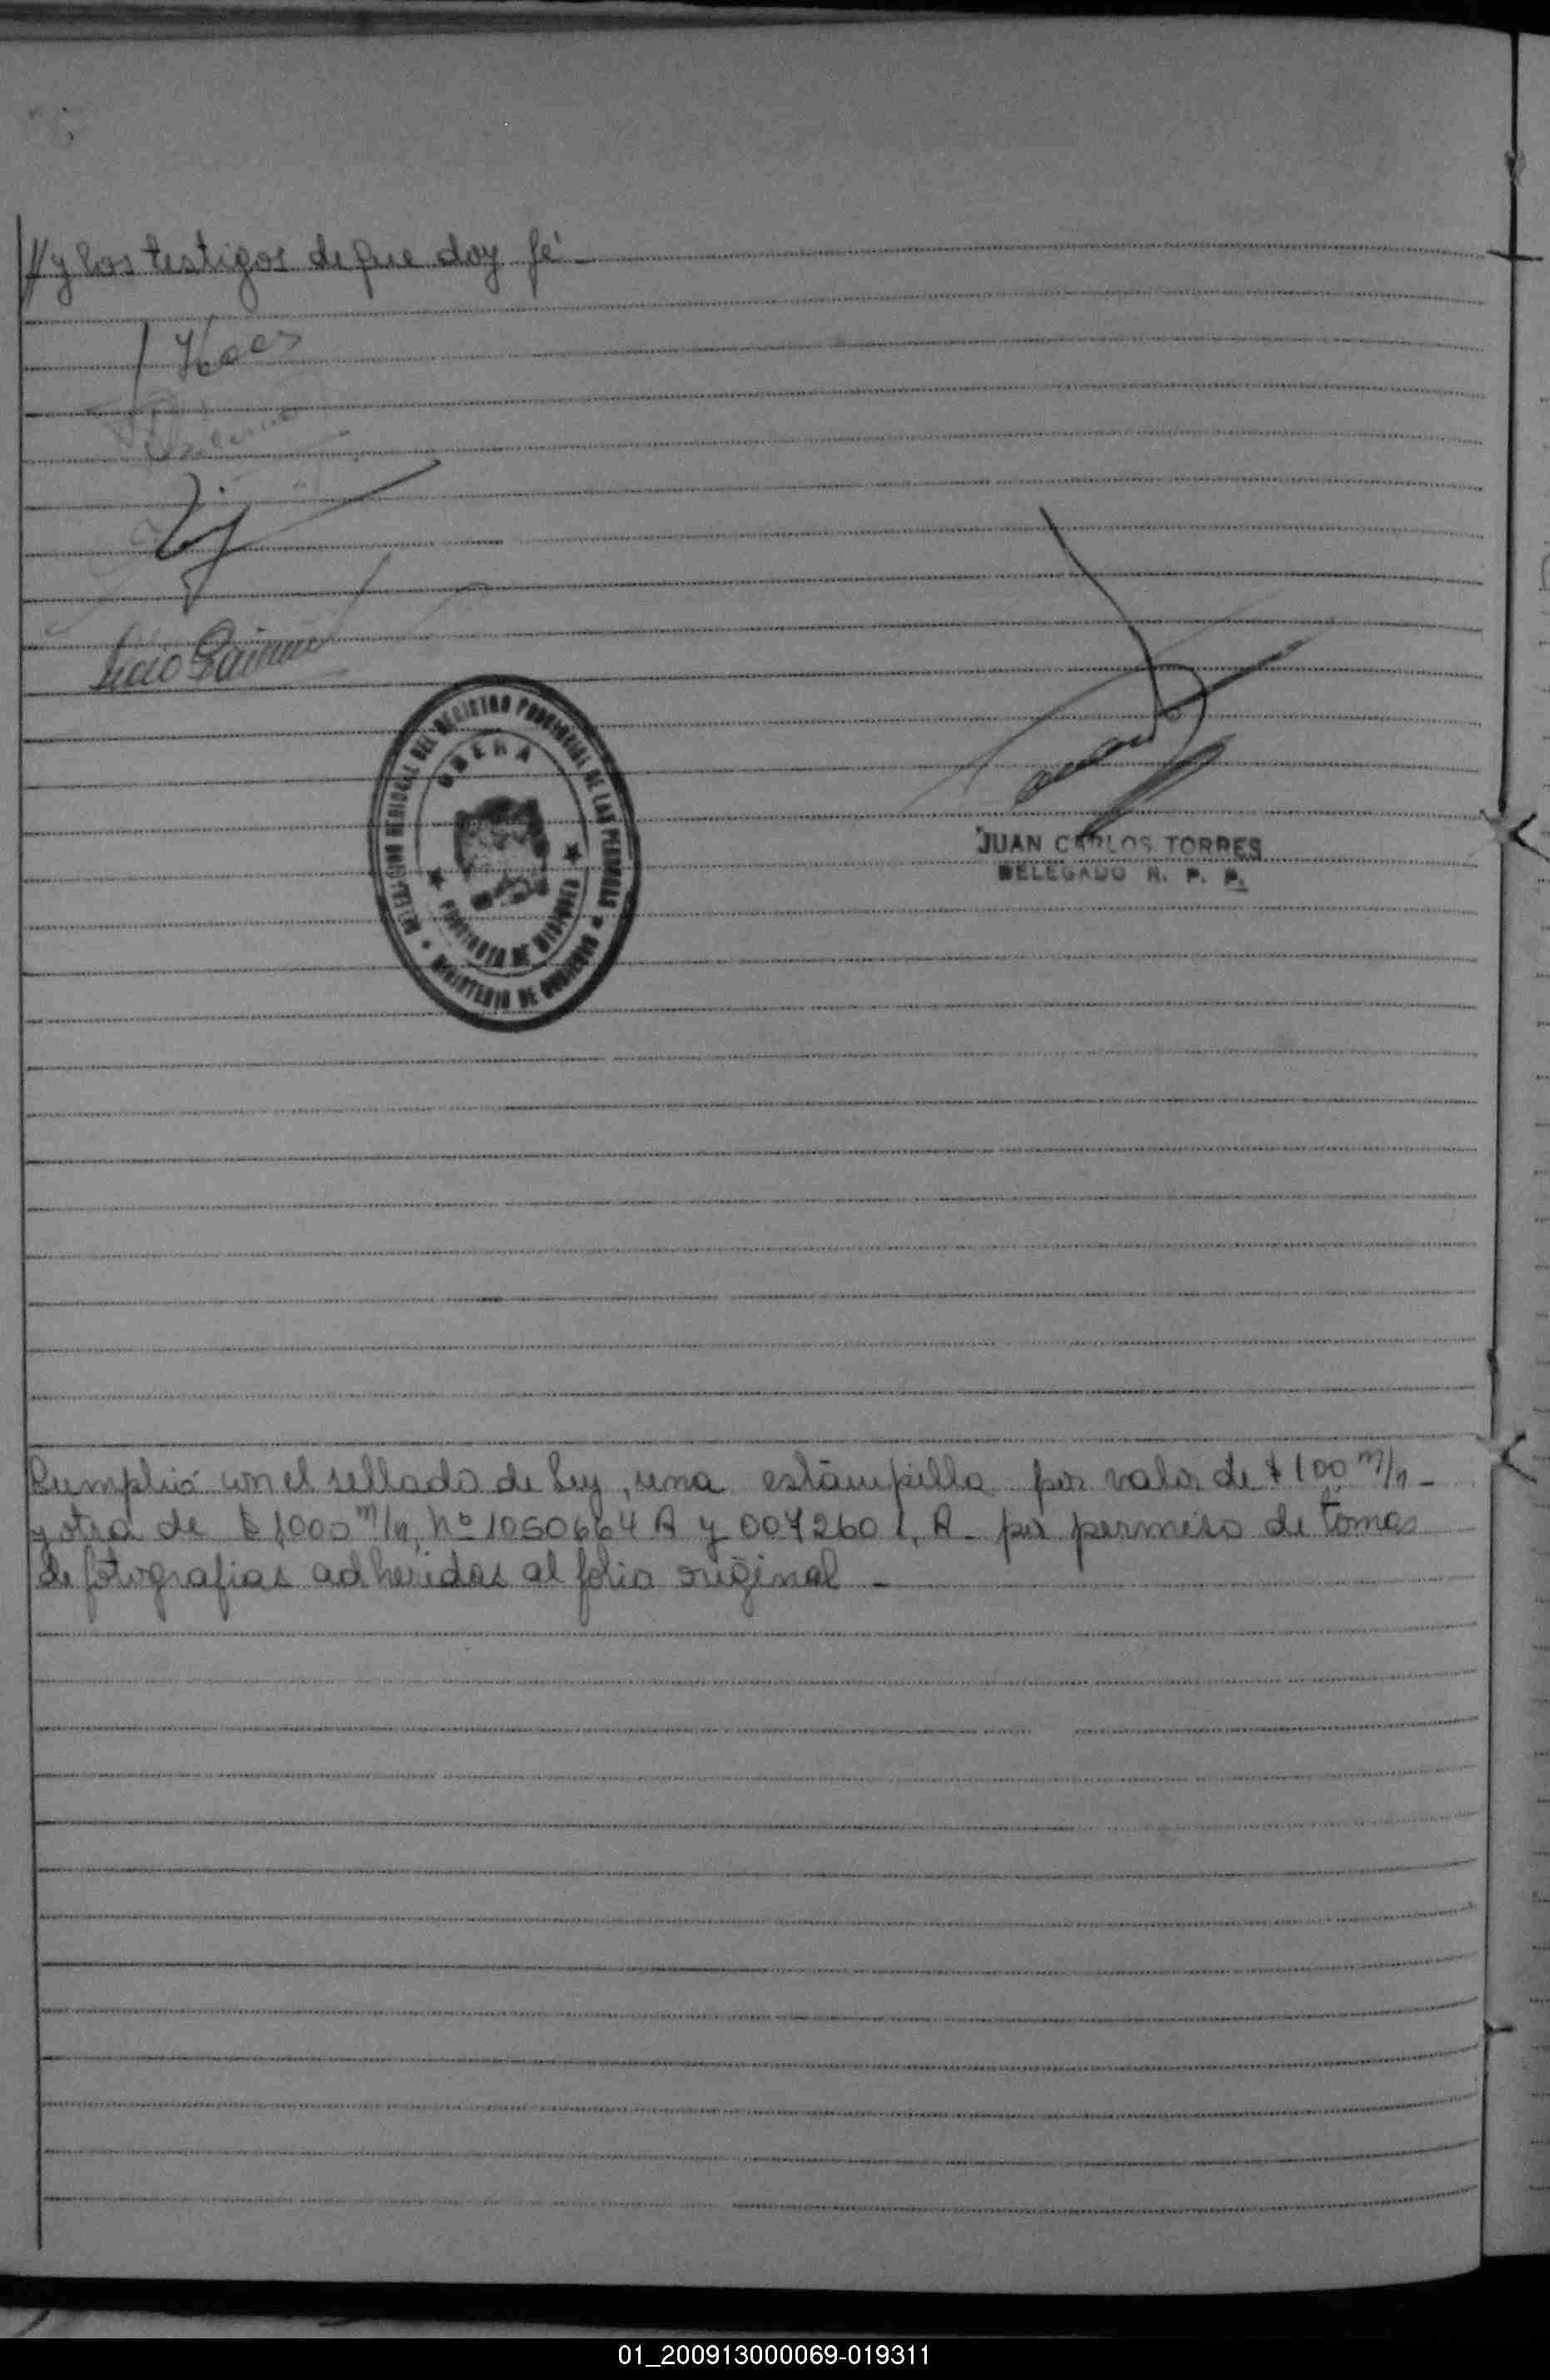 // y los testigos de que doy fé.-
Lucio
DELEGACION REGIONAL DEL REGISTRO PROVINCIAL DE LAS PERSONAS
OBERA
PROVINCIA DE MISIONES
MINISTERIO DE GOBIERNO
JUAN CARLOS TORRES
DELEGADO R. P. P.
Cumplió con el sellado de Ley, una estampilla por valor de $ 100 m/n -
y otra de $ 1,000 m/n, nº 1050664 A y 0072601, A - por permiso de tomas
de fotografias adheridas al folio original -
01_200913000069-019311